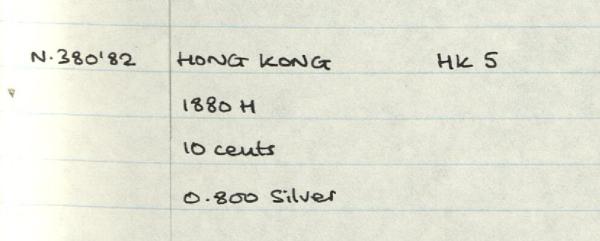 N.380'82 HONG KONG HK 5
1880 H
10 cents
0.800 Silver